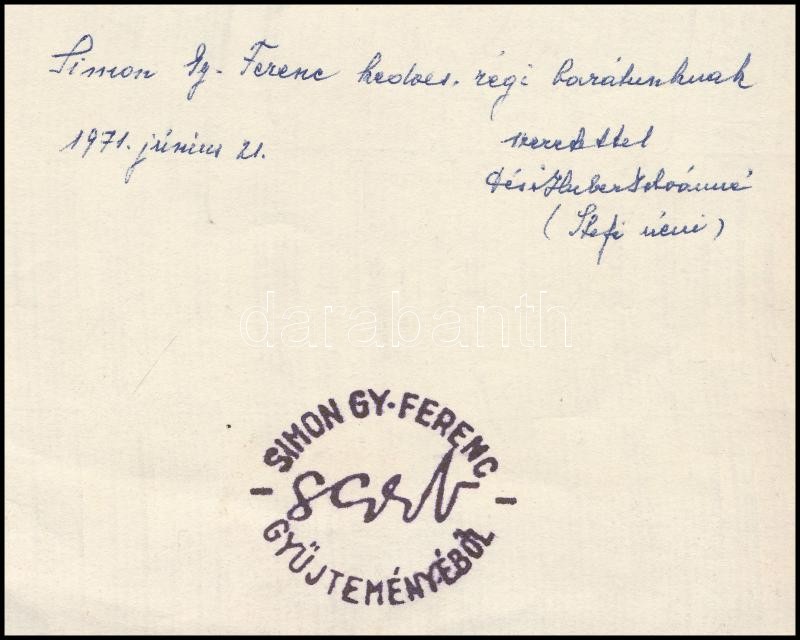 Simon Gy. Ferenc kedves. régi barátunknak
1971. június 21.
szeretettel
Dési Huber Istvánné
(Stefi néni)
darabanth
SIMON GY. FERENC
GYŰJTEMÉNYÉBŐL